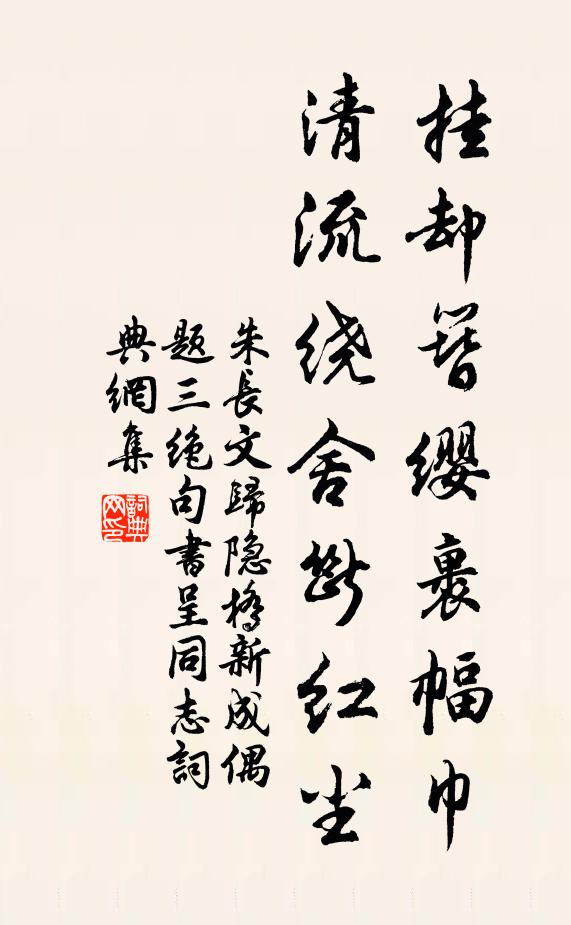 挂却簪缨裹幅巾
清流绕舍断红尘
朱長文歸隐橋新成偶
题三绝句書呈同志詞
典網集
詞典
网印